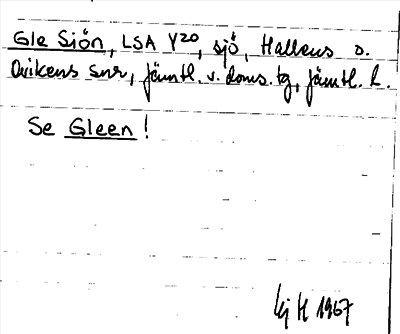 Gle Siön, LSA Y20, sjö, Hallens o.
Ovikens snr, Jämtl. v. doms. tg, Jämtl. l.
Se Gleen!
H 1967